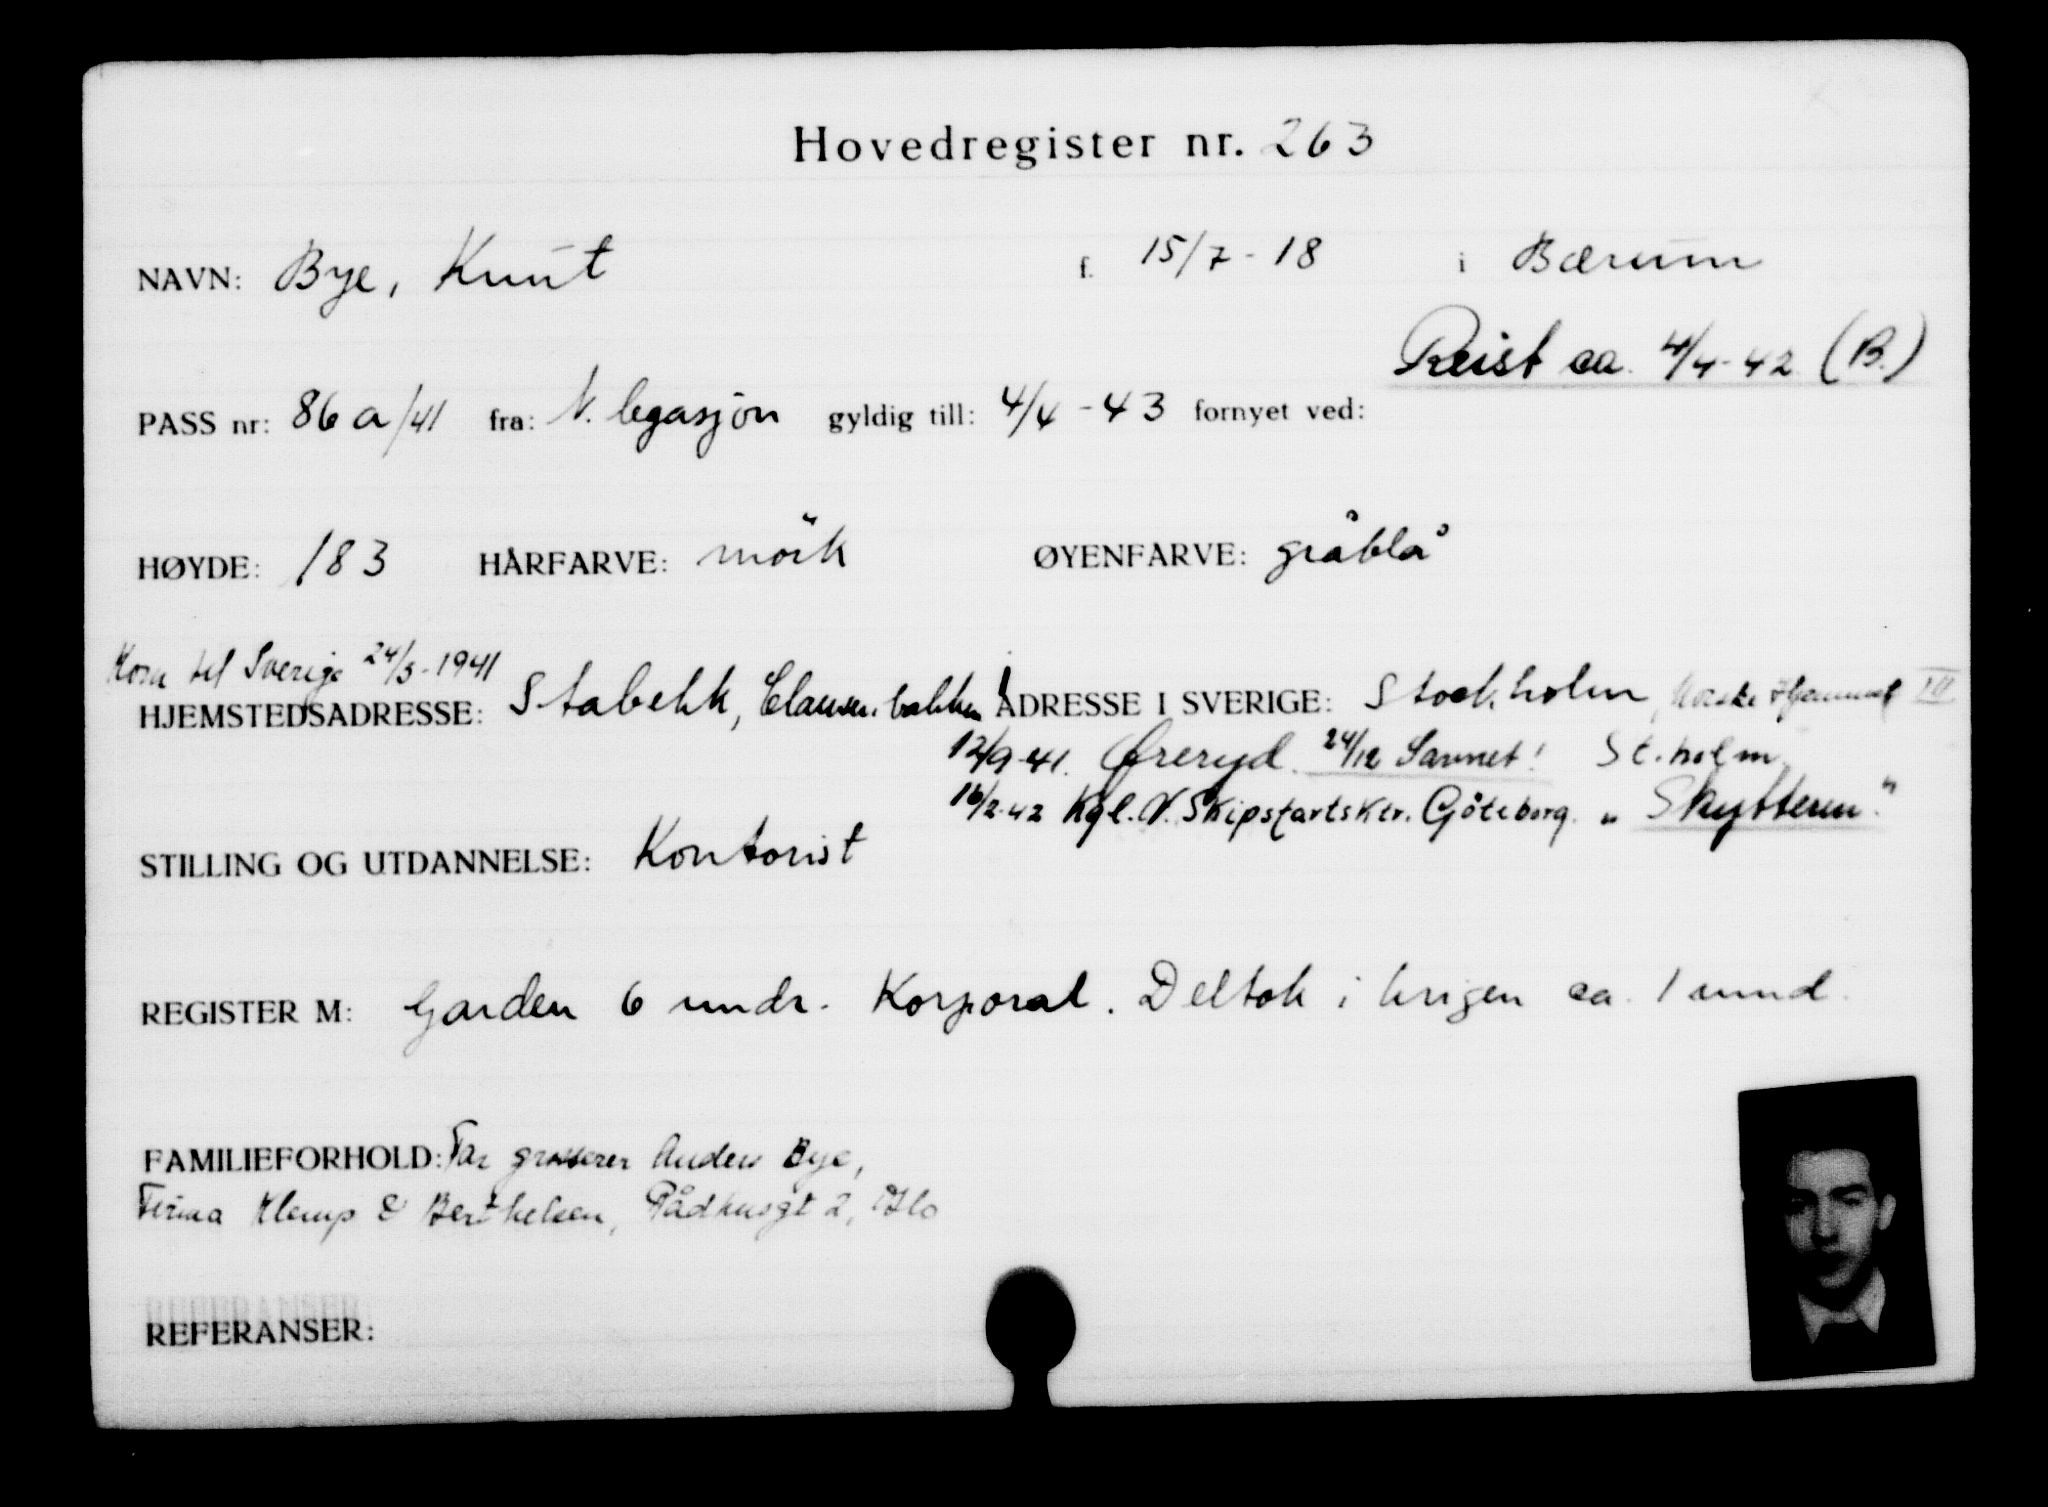 Hovedregister nr. 263
NAVN: Bye, Knut f. 15/7-18 i Bærum
Reist ca. 4/4-42 (B.)
PASS nr: 86 a/41 fra: N. legasjon gyldig till: 4/4-43 fornyet ved:
HØYDE: 183 HÅRFARVE: mörk ØYENFARVE: gråblå
Kom til Sverige 24/3-1941
HJEMSTEDSADRESSE: Stabekk, Clausenbakken ADRESSE I SVERIGE: Stockholm, Norske Hjemmet III
12/9-41. Øreryd. 24/12 Savnet! St.holm
16/2-42 Kgl. N. Skipsfartsktr. Göteborg. "Skytteren."
STILLING OG UTDANNELSE: Kontorist
REGISTER M: Garden 6 mndr. Korporal. Deltok i krigen ca. 1 mnd.
FAMILIEFORHOLD: Far grosserer Anders Bye,
Firma Klemp & Berthelsen, Rådhusgt 2, Oslo
REFERANSER: